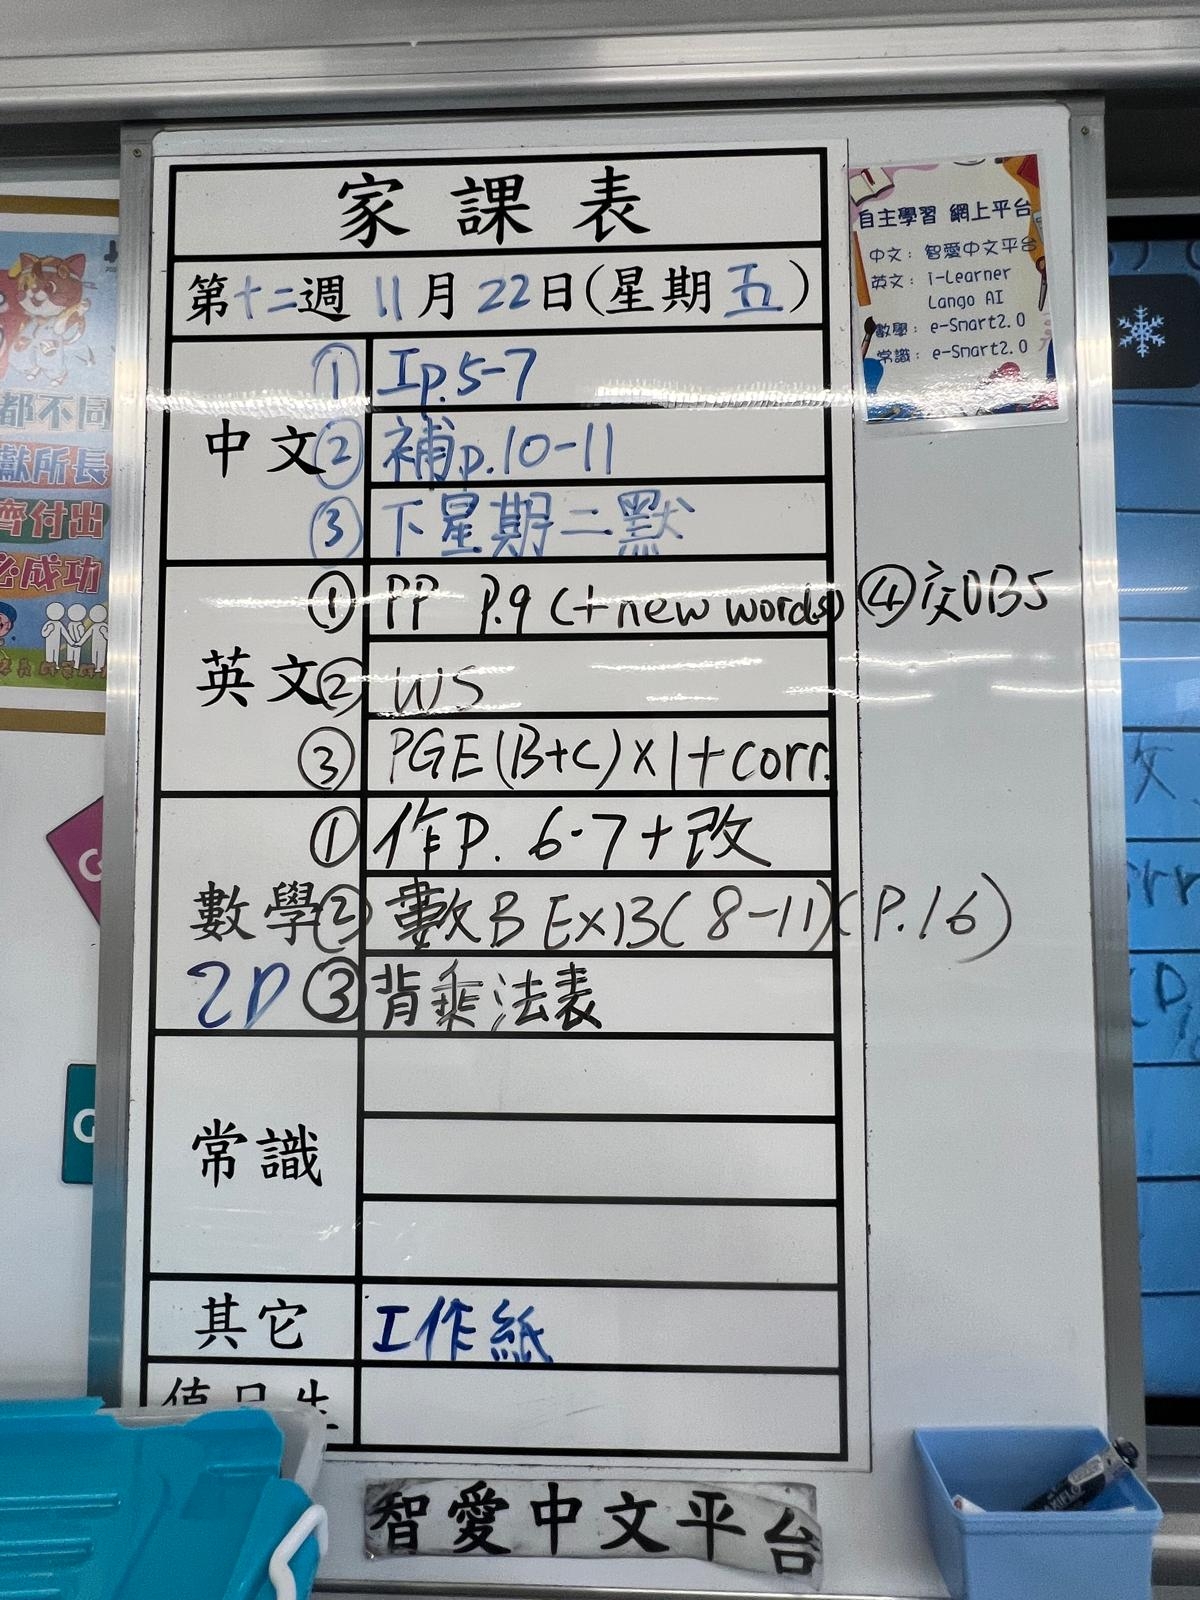 家課表
第十二週 11月22日(星期五)
中文
① Ip.5-7
② 補p.10-11
③ 下星期二默
英文
① PP P.9 (+new words)
④交OBS
② WS
③ PGE(B+C)x1+corr.
數學
2D
① 作P. 6-7+改
② 數B Ex13(8-11)(P.16)
③ 背乘法表
常識
其它
工作紙
值日生
智愛中文平台
自主學習 網上平台
中文：智愛中文平台
英文：i-Learner
Lango AI
數學：e-Smart2.0
常識：e-Smart2.0
都不同
獻所長
齊付出
必成功